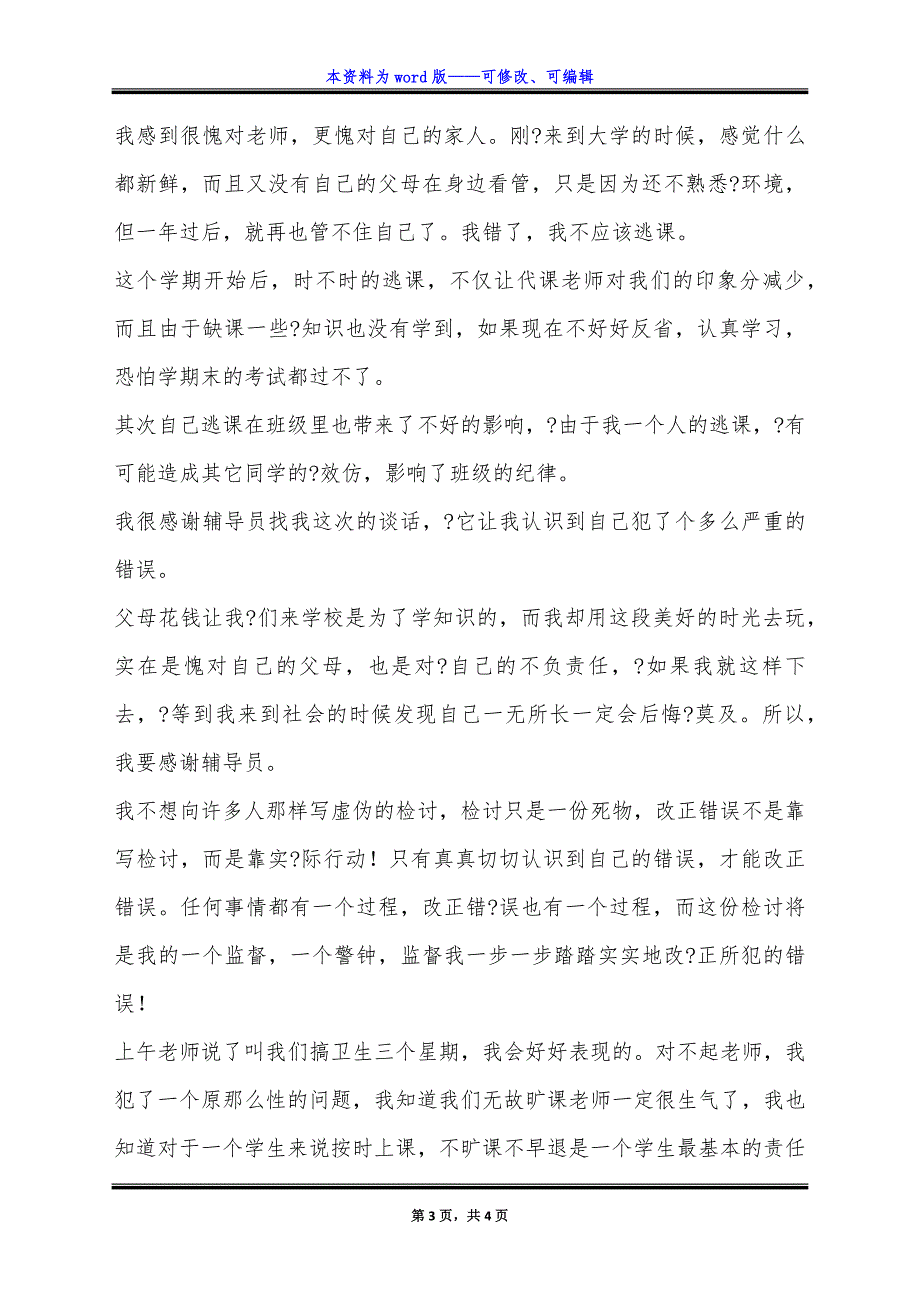 本资料为 word 版——可修改、可编辑
我感到很愧对老师，更愧对自己的家人。刚?来到大学的时候，感觉什么
都新鲜，而且又没有自己的父母在身边看管，只是因为还不熟悉?环境，
但一年过后，就再也管不住自己了。我错了，我不应该逃课。
这个学期开始后，时不时的逃课，不仅让代课老师对我们的印象分减少，
而且由于缺课一些?知识也没有学到，如果现在不好好反省，认真学习，
恐怕学期末的考试都过不了。
其次自己逃课在班级里也带来了不好的影响，?由于我一个人的逃课，?有
可能造成其它同学的?效仿，影响了班级的纪律。
我很感谢辅导员找我这次的谈话，?它让我认识到自己犯了个多么严重的
错误。
父母花钱让我?们来学校是为了学知识的，而我却用这段美好的时光去玩，
实在是愧对自己的父母，也是对?自己的不负责任，?如果我就这样下
去，?等到我来到社会的时候发现自己一无所长一定会后悔?莫及。所以，
我要感谢辅导员。
我不想向许多人那样写虚伪的检讨，检讨只是一份死物，改正错误不是靠
写检讨，而是靠实?际行动！只有真真切切认识到自己的错误，才能改正
错误。任何事情都有一个过程，改正错?误也有一个过程，而这份检讨将
是我的一个监督，一个警钟，监督我一步一步踏踏实实地改?正所犯的错
误！
上午老师说了叫我们搞卫生三个星期，我会好好表现的。对不起老师，我
犯了一个原那么性的问题，我知道我们无故旷课老师一定很生气了，我也
知道对于一个学生来说按时上课，不旷课不早退是一个学生最基本的责任
第 3 页，共 4 页